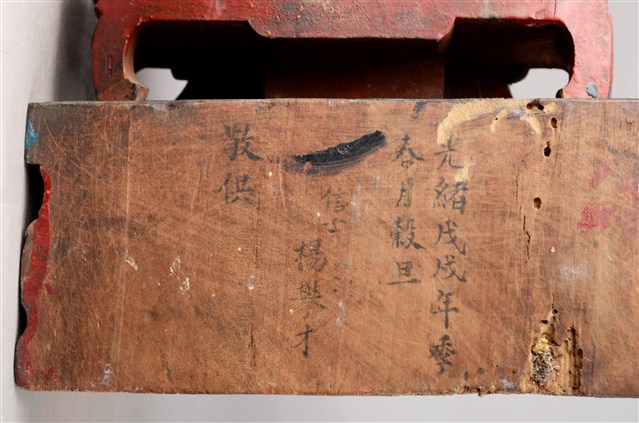 光緒戊戌年季
春月穀旦
信士楊攀才
敬供